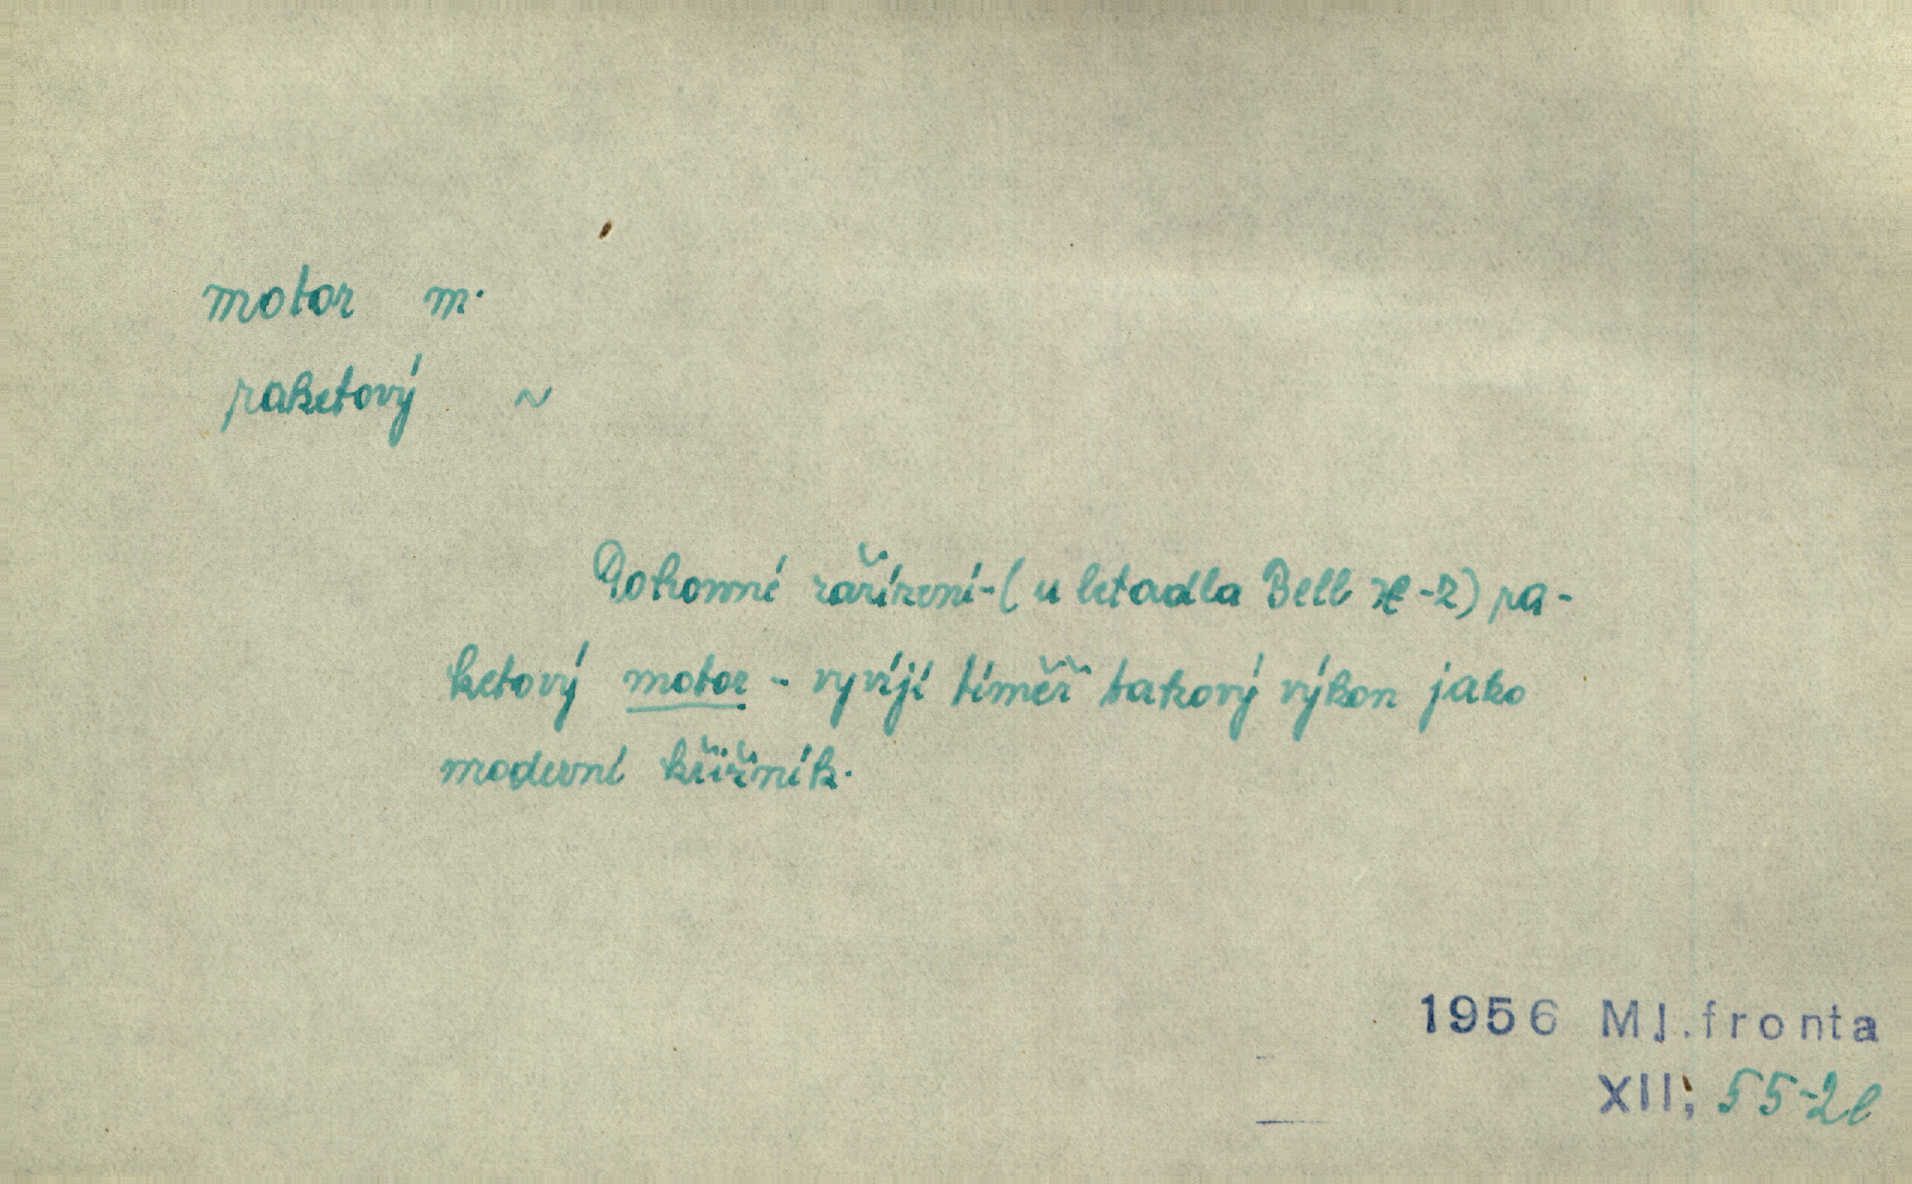 motor m.
raketový ~
Pohonné zařízení-(u letadla Bell X-2) ra-
ketový motor - vyvíjí téměř takový výkon jako
moderní křižník.
1956 Ml.fronta
XII; 55-2l